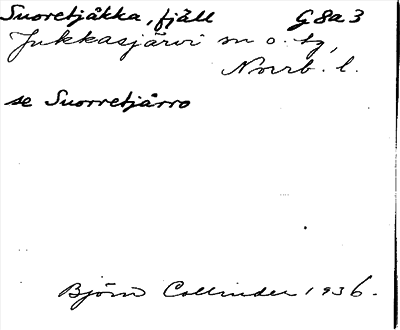 Suoretjåkka, fjäll G 8a 3
Jukkasjärvi sn o. tg,
Norrb. l.
se Suorretjårro
Björn Collinder 1936.